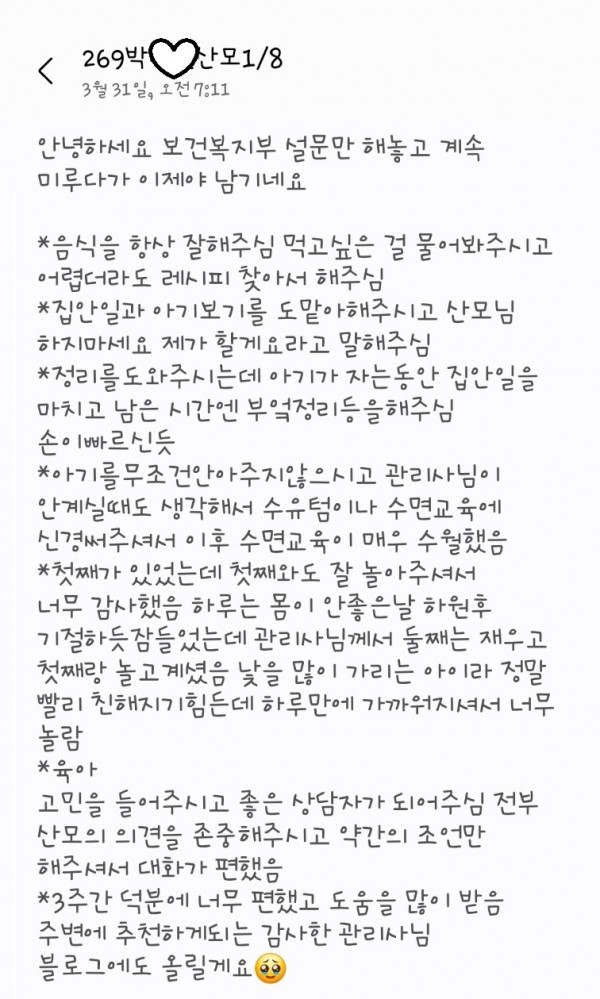 269박 산모1/8
3월 31일, 오전 7:11
안녕하세요 보건복지부 설문만 해놓고 계속
미루다가 이제야 남기네요
*음식을 항상 잘해주심 먹고싶은 걸 물어봐주시고
어렵더라도 레시피 찾아서 해주심
*집안일과 아기보기를 도맡아해주시고 산모님
하지마세요 제가 할게요라고 말해주심
*정리를도와주시는데 아기가 자는동안 집안일을
마치고 남은 시간엔 부엌정리등을해주심
손이빠르신듯
*아기를무조건안아주지않으시고 관리사님이
안계실때도 생각해서 수유텀이나 수면교육에
신경써주셔서 이후 수면교육이 매우 수월했음
*첫째가 있었는데 첫째와도 잘 놀아주셔서
너무 감사했음 하루는 몸이 안좋은날 하원후
기절하듯잠들었는데 관리사님께서 둘째는 재우고
첫째랑 놀고계셨음 낯을 많이 가리는 아이라 정말
빨리 친해지기힘든데 하루만에 가까워지셔서 너무
놀람
*육아
고민을 들어주시고 좋은 상담자가 되어주심 전부
산모의 의견을 존중해주시고 약간의 조언만
해주셔서 대화가 편했음
*3주간 덕분에 너무 편했고 도움을 많이 받음
주변에 추천하게되는 감사한 관리사님
블로그에도 올릴게요🥹